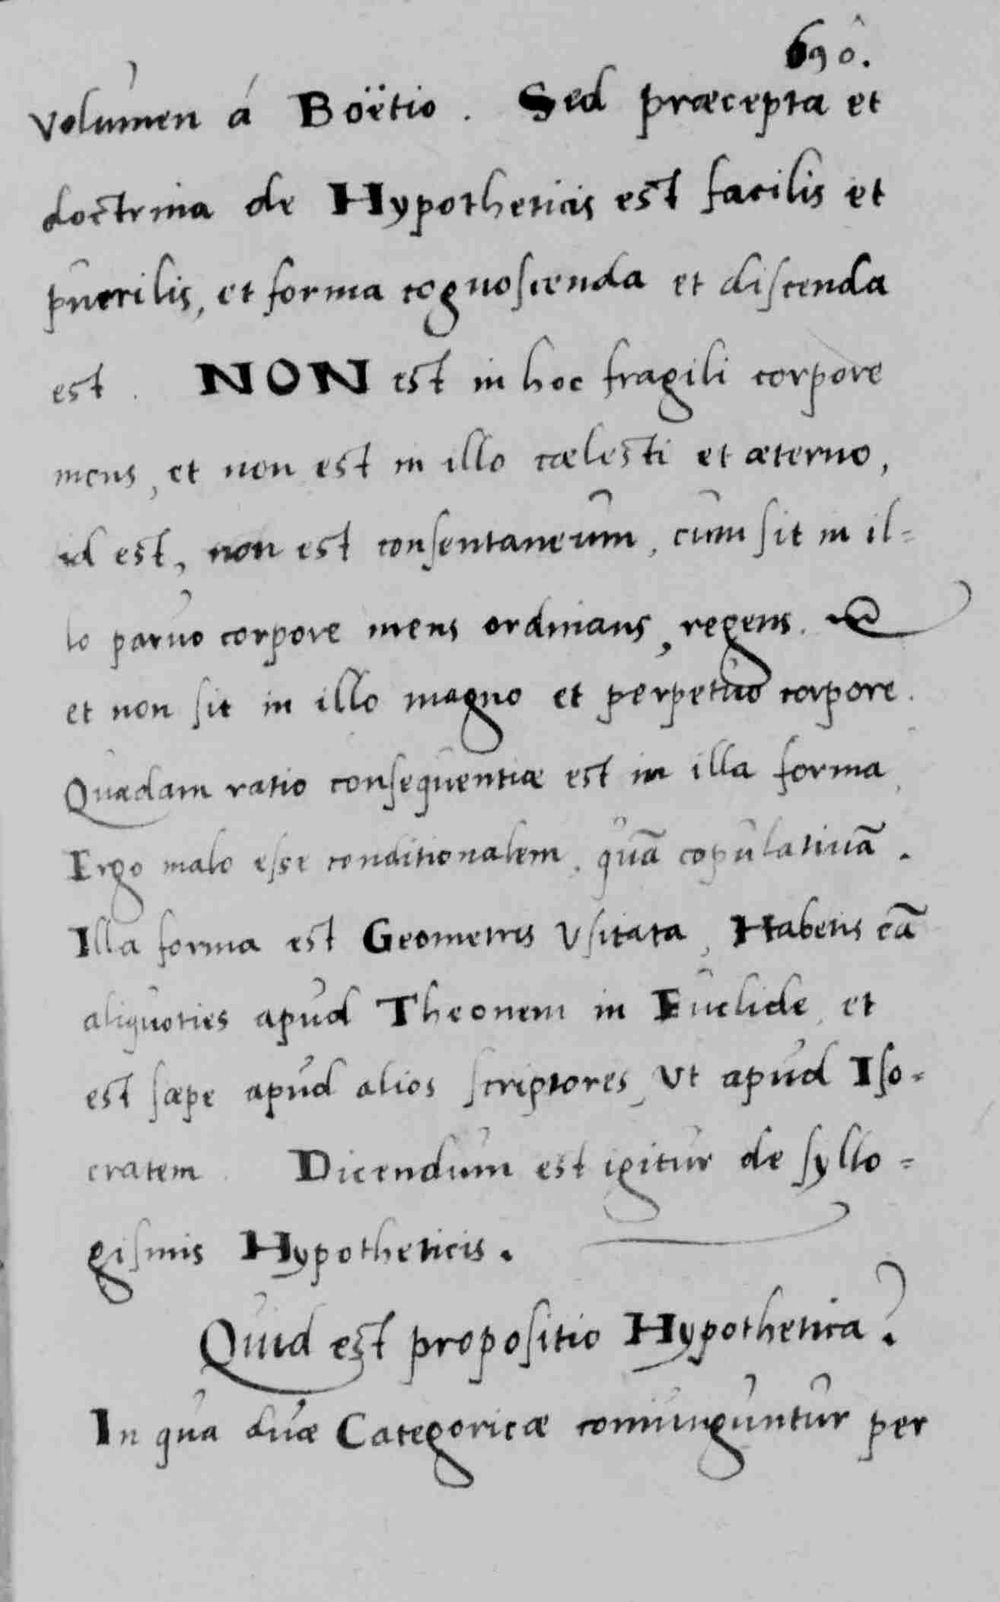 690.
volumen á Boëtio. Sed præcepta et
doctrina de Hypotheticis est facilis et
puerilis, et forma cognoscenda et discenda
est. NON est in hoc fragili corpore
mens, et non est in illo cælesti et æterno,
id est, non est consentaneum, cum sit in il=
lo paruo corpore mens ordinans, regens.
et non sit in illo magno et perpetuo corpore.
Quædam ratio consequentiæ est in illa forma,
Ergo malo esse conditionalem, quā copulatiuā.
Illa forma est Geometris vsitata, Habetis eā
aliquoties apud Theonem in Euclide, et
est sæpe apud alios scriptores, vt apud Iso=
cratem. Dicendum est igitur de syllo=
gismis Hypotheticis.
Quid est propositio Hypothetica?
In qua duæ Categoricæ coniunguntur per